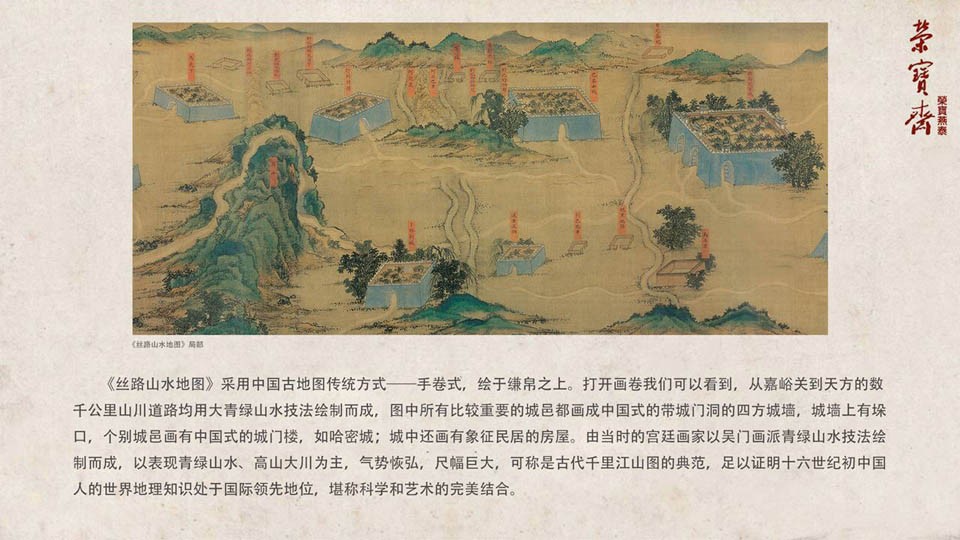 榮寶齋
榮寶燕泰
《丝路山水地图》局部
《丝路山水地图》采用中国古地图传统方式——手卷式，绘于缣帛之上。打开画卷我们可以看到，从嘉峪关到天方的数
千公里山川道路均用大青绿山水技法绘制而成，图中所有比较重要的城邑都画成中国式的带城门洞的四方城墙，城墙上有垛
口，个别城邑画有中国式的城门楼，如哈密城；城中还画有象征民居的房屋。由当时的宫廷画家以吴门画派青绿山水技法绘
制而成，以表现青绿山水、高山大川为主，气势恢弘，尺幅巨大，可称是古代千里江山图的典范，足以证明十六世纪初中国
人的世界地理知识处于国际领先地位，堪称科学和艺术的完美结合。